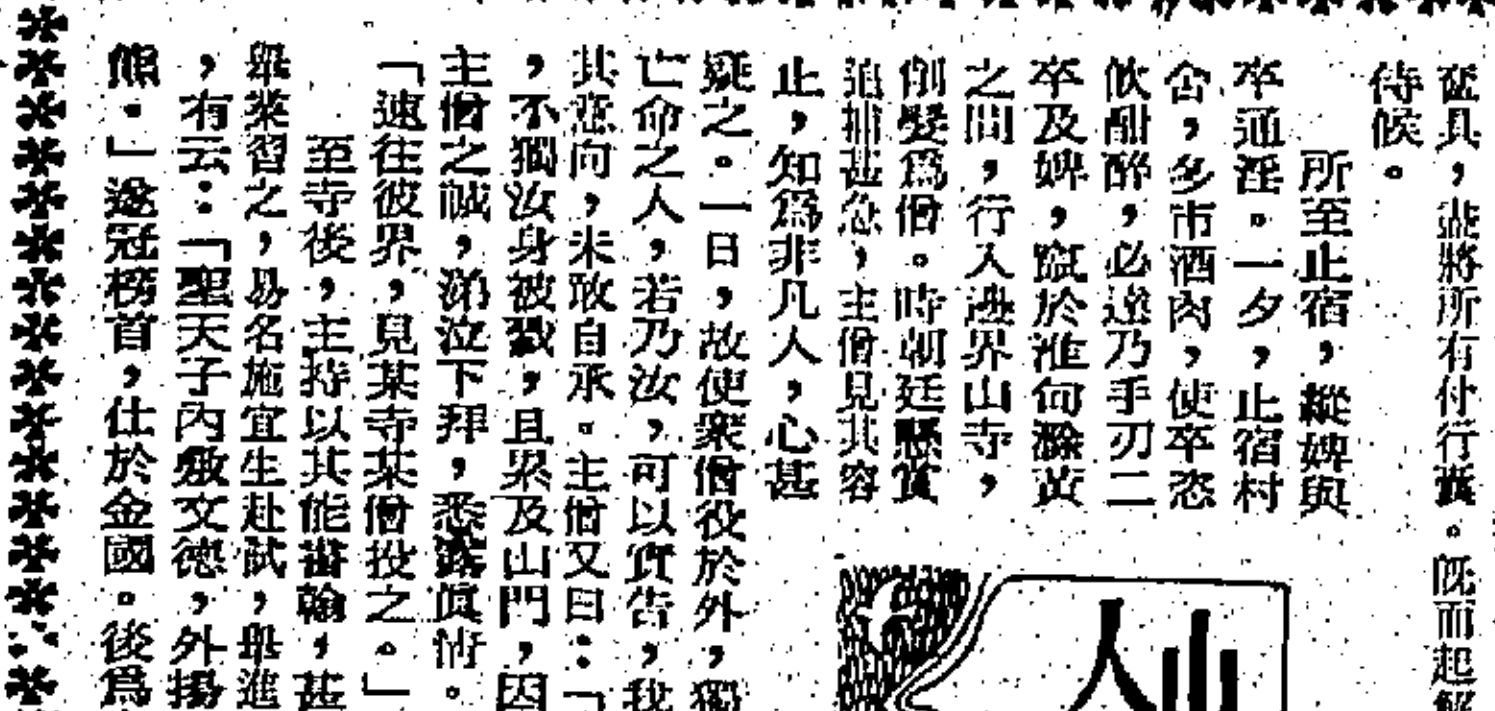 奩具，盡將所有付行囊。既而起解
待候。
所至止宿，縱婢與
卒通淫。一夕，止宿村
舍，多市酒肉，使卒恣
飲酣醉，必達乃手刃二
卒及婢，竄於淮甸滁黃
之間，行入邊界山寺，
削髮爲僧。時朝廷懸賞
追捕甚急，主僧見其容
止，知爲非凡人，心甚
疑之。一日，故使衆僧役於外，獨
亡命之人，若乃汝，可以實告，我
其意向，未敢自承。主僧又曰：「
，不獨汝身被戮，且累及山門，因
主僧之誠，涕泣下拜，悉露眞情。
「速往彼界，見某寺某僧投之。」
至寺後，主持以其能書翰，甚
舉業習之，易名施宜生赴試，舉進
，有云：「聖天子內敷文德，外揚
熊。」遂冠榜首，仕於金國。後爲
山人